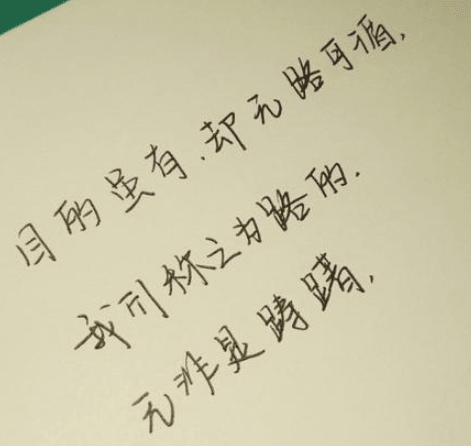 目的虽有,却无路可循,
我们称之为路的,
无非是踌躇,